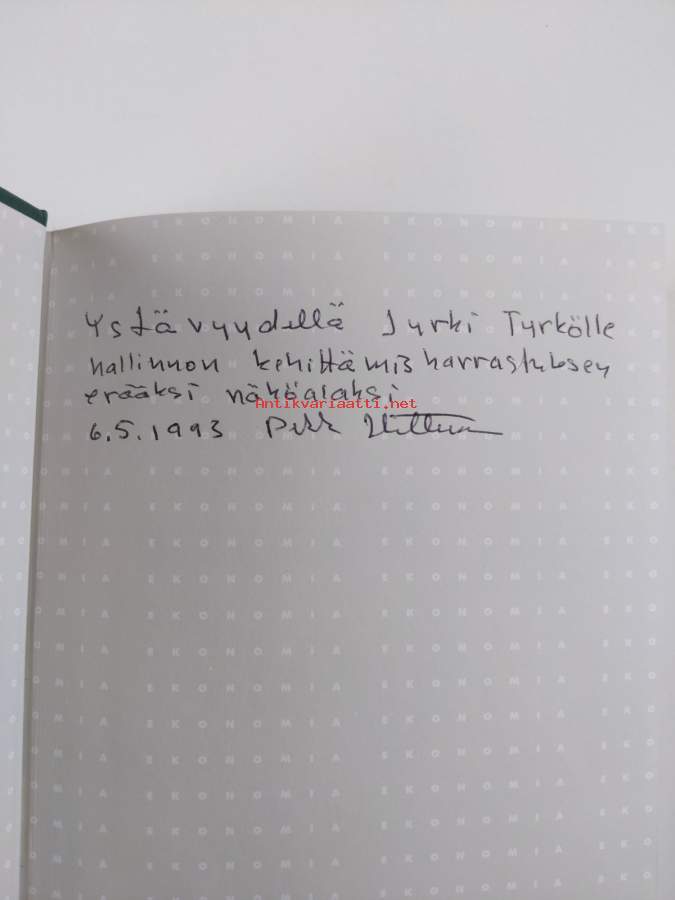 Ystävyydellä Jyrki Tyrkölle
hallinnon kehittämisharrastuksen
erääksi näköalaksi
Antikvariaatti.net
6.5.1993
EKONOMIA EKONOMIA EKONOMIA